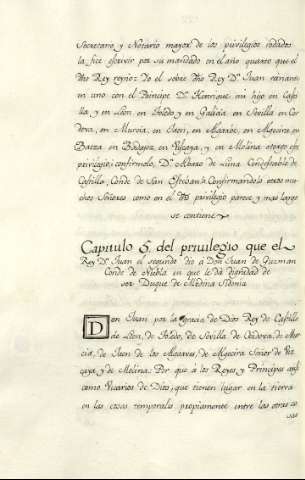 Secretario, y Notario mayor de los privilegios rodados
la fice escrivir por su mandado en el año quarto que el
dho Rey reyno: Io el sobre dho Rey Dn. Juan reinante
en uno con el Principe Dn. Henrique mi hijo en Casti
lla, y en Leon, en Toledo y en Galicia, en Sevilla en Cor
dova, en Murcia, en Jaen, en Algarve, en Algecira, en
Baeza, en Badajoz, en Vizcaya, y en Molina otorgo este
privilegio, confirmolo, Dn. Alvaro de Luna, Condestable de
Castilla, Conde de San Estevan. Confirmandolo otros mu
chos Señores como en el dho privilegio parece, y mas largo
se contiene
Capitulo 5. del privilegio que el
Rey Dn. Juan el segundo dio a Don Juan de Guzman
Conde de Niebla en que le da dignidad de
ser Duque de Medina Sidonia
Don Juan por la gracia de Dios Rey de Castilla
de Leon, de Toledo, de Sevilla de Cordova, de Mur
cia, de Jaen de los Algarves, de Algecira Señor de Viz
caya, y de Molina: Por que a los Reyes y Principes assi
como Vicarios de Dios, que tienen lugar en la tierra
en las cosas temporales propiamente entre las otras co
sas